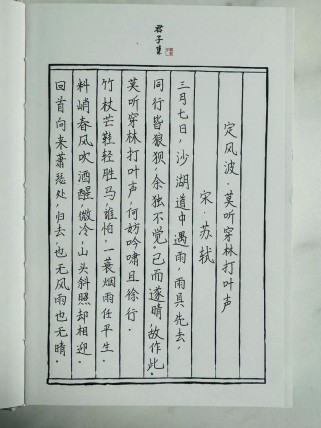 君子集
定风波·莫听穿林打叶声
宋·苏轼
三月七日，沙湖道中遇雨，雨具先去，
同行皆狼狈，余独不觉。已而遂晴，故作此。
莫听穿林打叶声，何妨吟啸且徐行。
竹杖芒鞋轻胜马，谁怕，一蓑烟雨任平生。
料峭春风吹酒醒，微冷，山头斜照却相迎。
回首向来萧瑟处，归去，也无风雨也无晴。